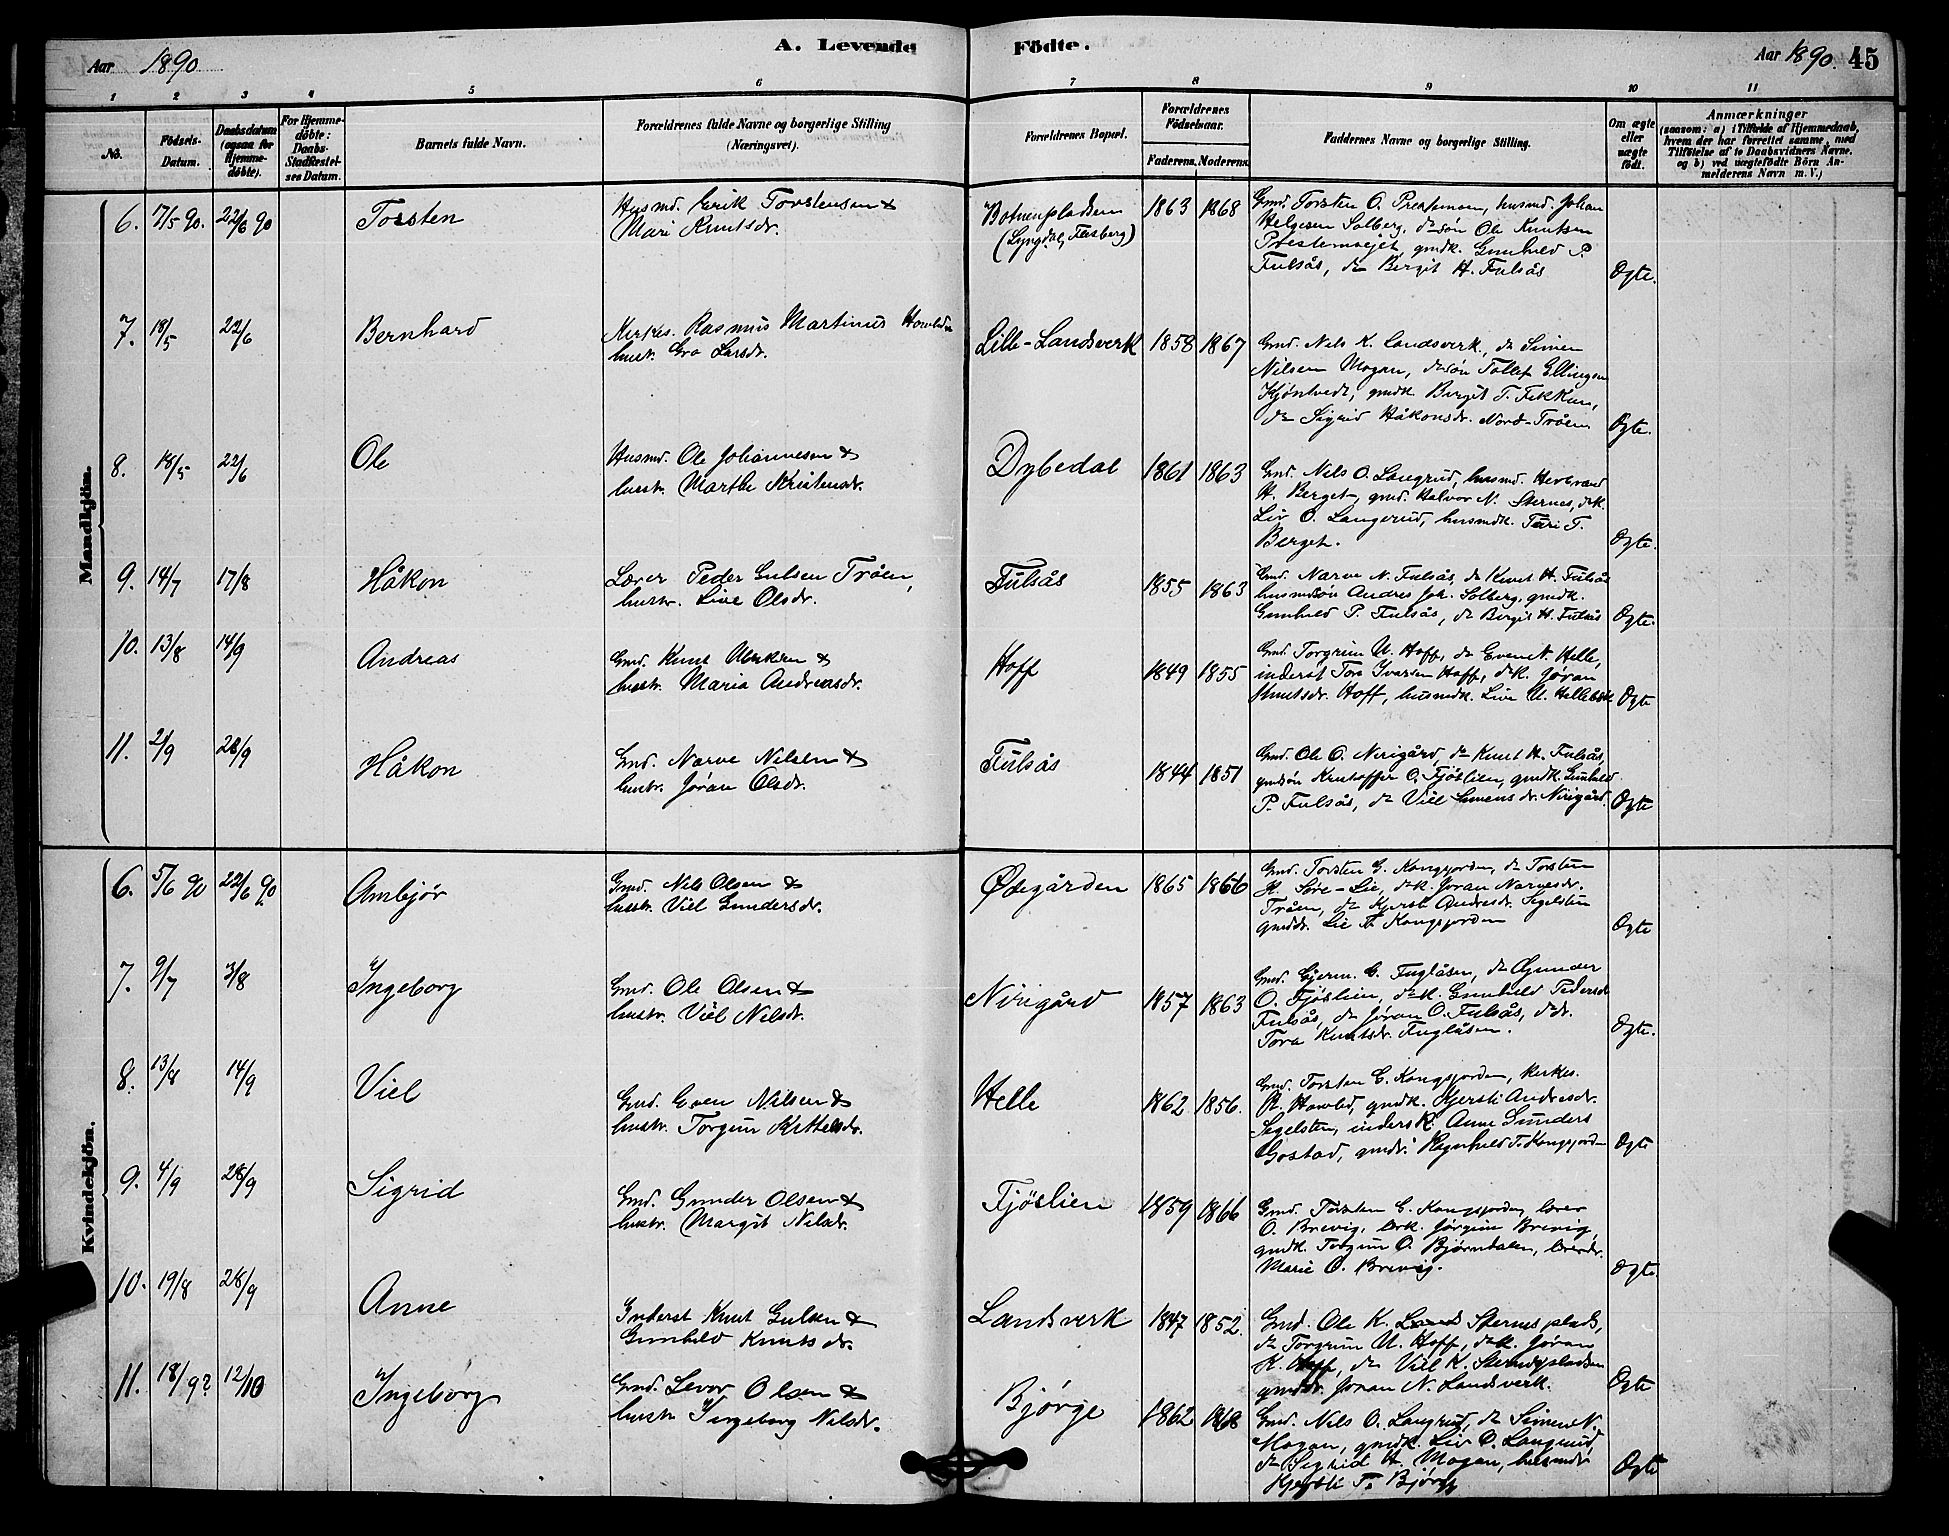 Aar 1890
A. Levende Födte.
Aar 1890. 45
1 2 3 4 5 6 7 8 9 10 11
No.
Födsels-Datum.
Daabsdatum (ogsaa for Hjemme-döbte).
For Hjemme-döbte: Daabs-Stadfæstel-ses Datum.
Barnets fulde Navn.
Forældrenes fulde Navne og borgerlige Stilling (Næringsvei).
Forældrenes Bopæl.
Forældrenes Födselsaar.
Faderens. Moderens.
Faddernes Navne og borgerlige Stilling.
Om ægte eller uægte födt.
Anmærkninger
(saasom: a) i Tilfælde af Hjemmedaab, hvem der har forrettet samme, med Tilföielse af to Daabsvidners Navne, og b) ved uægtefödte Börn An-melderens Navn m. V.)
Mandkjön.
6. 17/5 90. 22/6 90 Torsten
Husmd. Erik Torstensen &
Mari Knutsdr.
Botnenpladsen
(Lyngdal, Flesberg)
1863 1868
Gmd. Torsten O. husmd. Johan
Helgesen Solberg, do søn Ole Knutsen
Prestemoejet, gmdk. Gunhild P.
Fulsås, do Bergit H. Fulsås
Ægte.
7. 18/5 22/6 Bernhard
Kirkes. Rasmus Martinus
hustr. Gro Larsdr.
Lille-Landsverk 1858 1867
Gmd. Nels K. Landsverk, do Simen
Nilsen Mogan, do søn Tollef Ellingsen
Kjøntvedt, gmdk. Bergit T.
do Sigrid Håkonsdr. Nord-Tröen
Ægte.
8. 18/5 22/6 Ole
Husmd. Ole Johannesen &
hustr. Marthe Kristensdr.
Dybedal 1861 1863
Gmd. Nels O. Langrud, husmd. Herbrand
H. Berget, gmd. Halvor N. Sternes, do k.
Liv O. Langerud, husmdk. Turi T.
Berget.
Ægte.
9. 14/7 17/8 Håkon
Lærer Peder Gulsen Tröen,
hustr. Live Olsdr.
Fulsås 1855 1863
Gmd. Narve N. Fulsås, do Knut H. Fulsås
husmdsøn Andres Joh. Solberg, gmdk.
Gunhild P. Fulsås, do Birgit H. Fulsås
Ægte.
10. 13/8 14/9 Andreas
Gmd. Knut &
hustr. Maria Andreasdr.
Hoff 1849 1855
Gmd. Torgrim U. Hoff, do Even N. Helle,
inderst Tor Ivarsen Hoff, do k. Jøran
Knutsdr. Hoff, husmdk. Live U.
Ægte
11. 2/9 28/9 Håkon
Gmd. Narve Nilsen &
hustr. Jøran Olsdr.
Fulsås 1844 1851
Gmd. Ole O. Nirigård, do Knut H. Fulsås,
gmdsøn Kristoffer O. Fjöslien, gmdk. Gunhild
P. Fulsås, do Viel Simensdr. Nirigård.
Ægte
Kvindekjön.
6. 5/6 90 22/6 90. Ambjör
Gmd. Nils Olsen &
hustr. Viel Gundersdr.
Ødegården 1865 1866
Gmd. Torsten G. Kongsjorden, do Torsten
H. Søre-Lie, do k. Joran Narvesdr.
Tråen, do Kjersti Andresdr. Segelsten
gmddr. Lie T. Kongsjorden
Ægte
7. 9/7 3/8 Ingeborg
Gmd. Ole Olsen &
hustr. Viel Nilsdr.
Nirigård 1857 1863
Gmd. Gjerm. G. Fuglåsen, do Gunder
O. Fjöslien, do k. Gunhild Pedersdr
Fulsås, do Jøran O. Fulsås, do dr.
Tora Knutsdr. Fuglåsen.
Ægte.
8. 13/8 14/9 Viel
Gmd. Even Nilsen &
hustr. Torgun Kittelsdr.
Helle 1862 1856.
Gmd. Torsten G. Kongsjorden, kirkes.
R. gmdk. Kjersti Andresdr.
Segelsten, inderstk. Anne Gunders
Gostad, gmdr. Ragnhild T. Kongsjorden
Ægte
9. 4/9 28/9 Sigrid
Gmd. Gunder Olsen &
hustr. Margit Nilsdr.
Fjöslien 1859 1866
Gmd. Torsten G. Kongsjorden, lærer
O. Brevig, lærk. Jørgine Brevig,
gmdk. Torgun O. Bjørndalen, lærerdr.
Marie O. Brevig.
Ægte.
10. 19/8 28/9 Anne
Inderst Knut Gulsen &
Gunhild Knutsdr.
Landsverk 1847 1852.
Gmd. Ole K. Sternesplads,
do Torgrim U. Hoff, do k. Jøran
K. Hoff, do Viel K. Sternespladsen
gmddr. Joran N. Landsverk.
Ægte
11. 18/9? 12/10 Ingeborg
Gmd. Levor Olsen &
hustr. Ingeborg Nilsdr.
Bjørge 1862 1868
Gmd. Nils O. Langrud, do Simen N.
Mogan, gmdk. Liv O. Langrud,
do Sigrid H. Mogan, husmdr
Kjersti T. Bjørge
Ægte